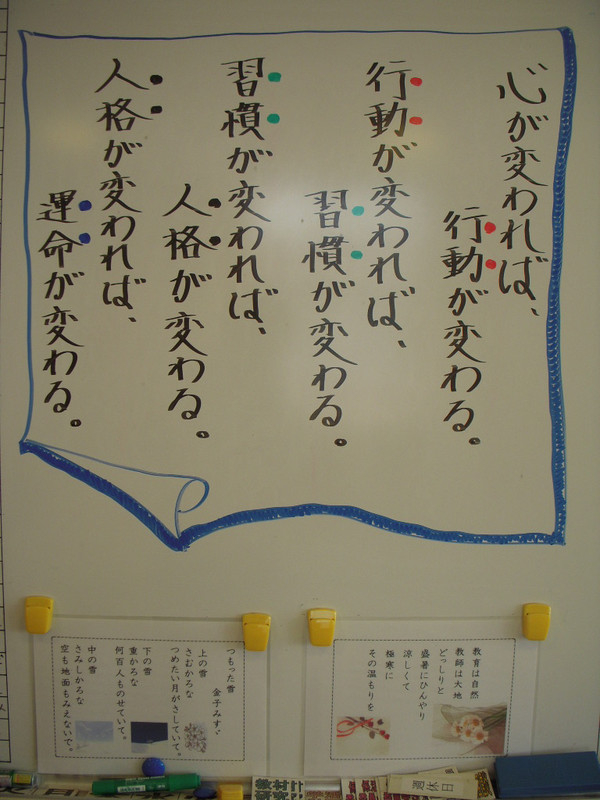 心が変われば、
行動が変わる。
行動が変われば、
習慣が変わる。
習慣が変われば、
人格が変わる。
人格が変われば、
運命が変わる。
教育は自然
教師は大地
どっしりと
盛暑にひんやり
涼しくて
極寒に
その温もりを
つもった雪
金子みすゞ
上の雪
さむかろな
つめたい月がさしていて。
下の雪
重かろな
何百人ものせていて。
中の雪
さみしかろな
空も地面もみえないで。
週休日